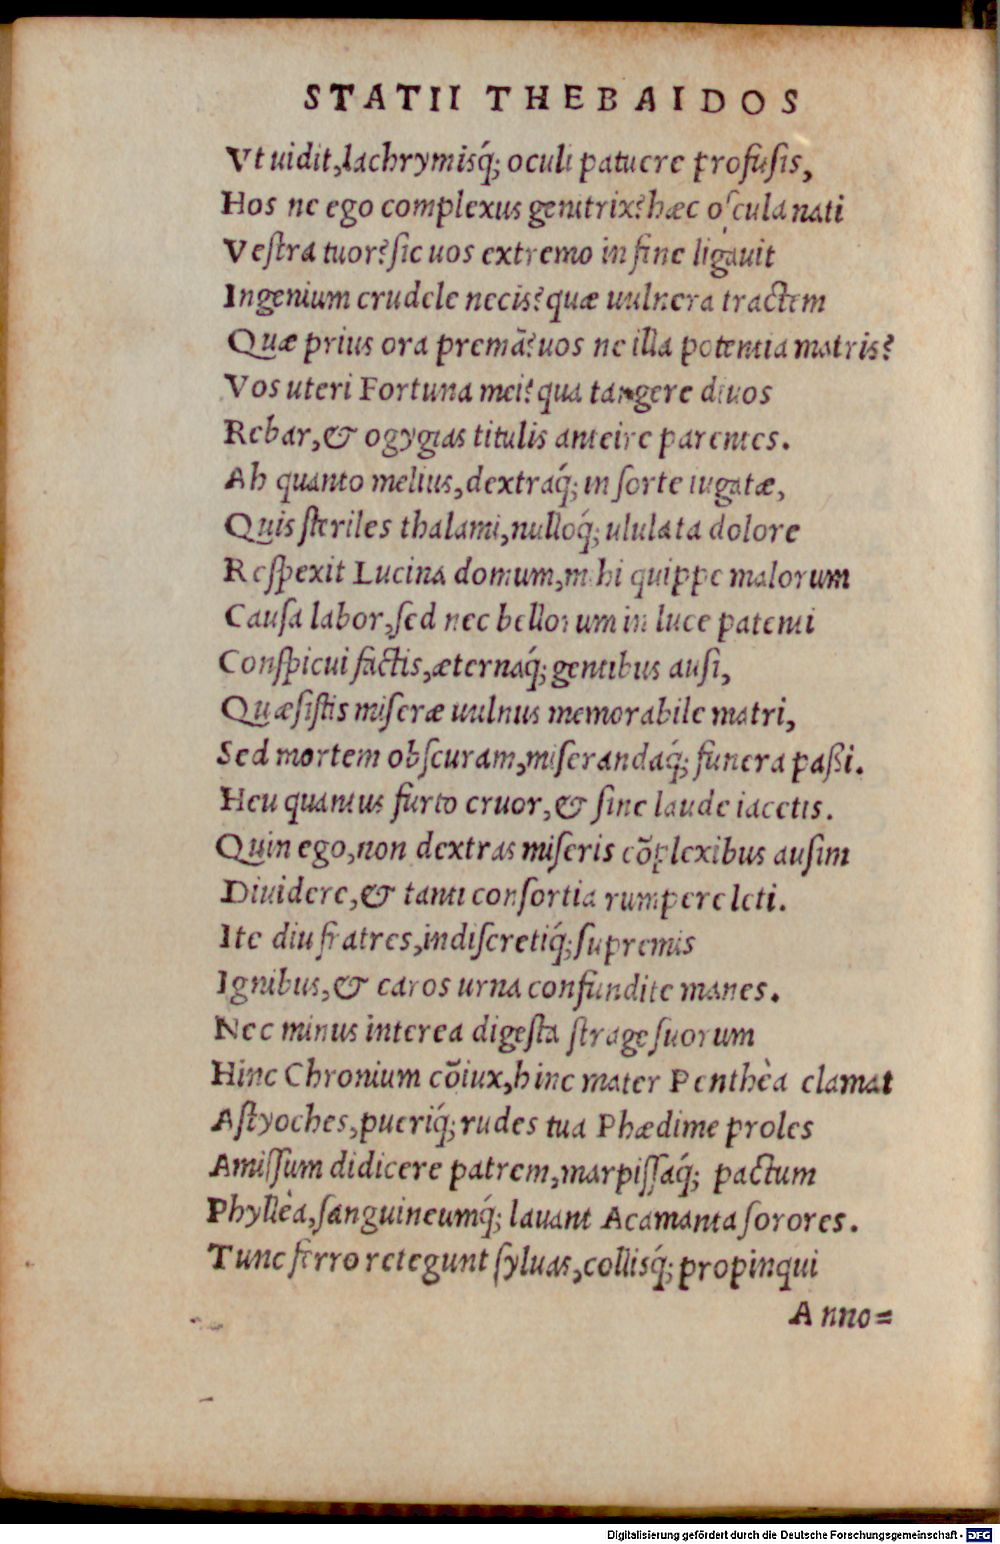 STATII THEBAIDOS
Vt uidit,lachrymisq́; oculi patuere profusis,
Hos ne ego complexus genitrix?hæc oscula nati
Vestra tuor?sic uos extremo in fine ligauit
Ingenium crudele necis?quæ uulnera tractem
Quæ prius ora premā?uos ne illa potentia matris?
Vos uteri Fortuna mei?qua tangere diuos
Rebar,& ogygias titulis anteire parentes.
Ah quanto melius,dextraq́; in sorte iugatæ,
Quis steriles thalami,nulloq́; ululata dolore
Respexit Lucina domum,mihi quippe malorum
Causa labor,sed nec bellorum in luce patenti
Conspicui factis,æternaq́; gentibus ausi,
Quæsistis miseræ uulnus memorabile matri,
Sed mortem obscuram,miserandaq́; funera paßi.
Heu quantus furto cruor,& sine laude iacetis.
Quin ego,non dextras miseris cōplexibus ausim
Diuidere,& tanti consortia rumpere leti.
Ite diu fratres,indiscretiq́; supremis
Ignibus,& caros urna confundite manes.
Nec minus interea digesta strage suorum
Hinc Chronium cōiux,hinc mater Penthèa clamat
Astyoches,pueriq́; rudes tua Phædime proles
Amissum didicere patrem,marpissaq́; pactum
Phyllèa,sanguineumq́; lauant Acamanta sorores.
Tunc ferro retegunt syluas,collisq́; propinqui
Anno=
Digitalisierung gefördert durch die Deutsche Forschungsgemeinschaft - DFG